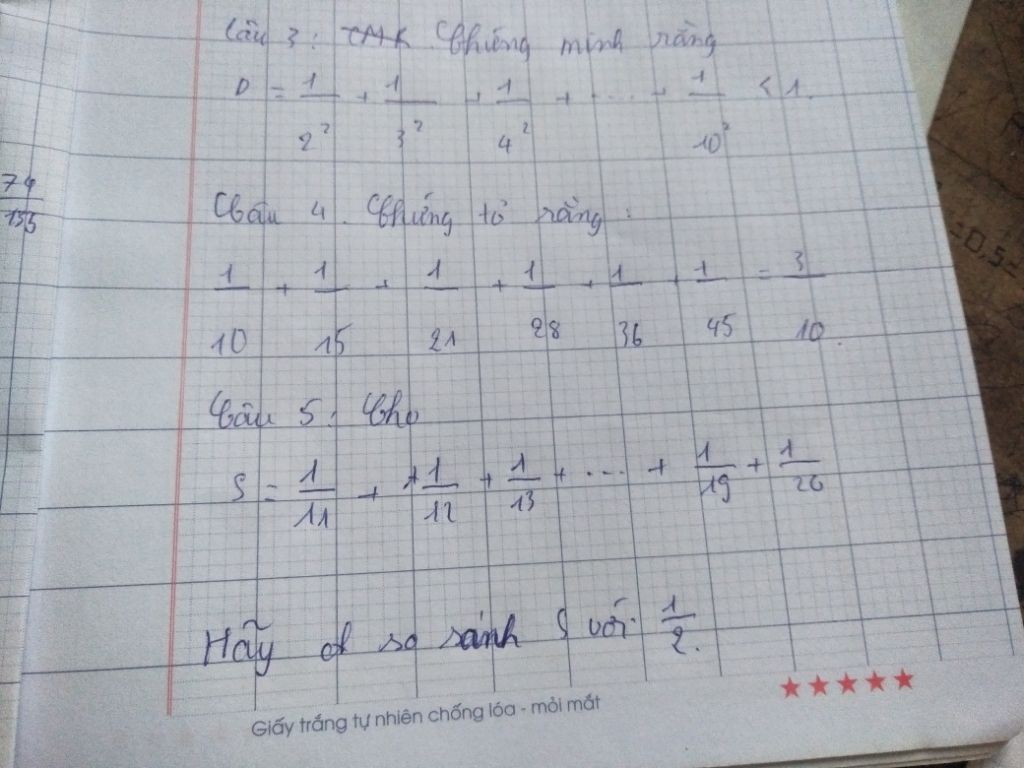 Câu 3: Chứng minh rằng
D = 1/2² + 1/3² + 1/4² + ... + 1/10² < 1.
74/155
Câu 4. Chứng tỏ rằng:
1/10 + 1/15 + 1/21 + 1/28 + 1/36 + 1/45 = 3/10.
Câu 5: Cho
S = 1/11 + 1/12 + 1/13 + ... + 1/19 + 1/20
Hãy so sánh S với 1/2.
Giấy trắng tự nhiên chống lóa - mỏi mắt